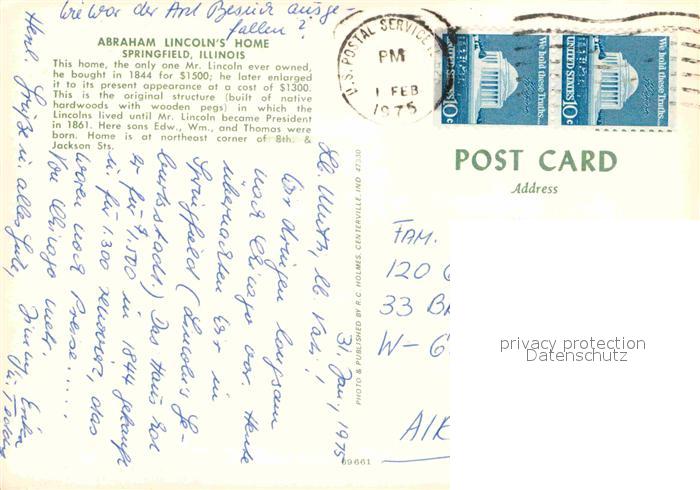 Wie war der Arzt Besuch ausge-
fallen?
ABRAHAM LINCOLN'S HOME
SPRINGFIELD, ILLINOIS
This home, the only one Mr. Lincoln ever owned,
he bought in 1844 for $1500; he later enlarged
it to its present appearance at a cost of $1300.
This is the original structure (built of native
hardwoods with wooden pegs) in which the
Lincolns lived until Mr. Lincoln became President
in 1861. Here sons Edw., Wm., and Thomas were
born. Home is at northeast corner of 8th. &
Jackson Sts.
31. Jan, 1975
Lb. Mutti, lb. Vati!
Wir dringen langsam
nach Chicago vor. Heute
übernachten wir in
Springfield (Lincoln's Ge-
burtsstadt.) Das Haus hat
er für $1,500 in 1844 gekauft
u. für 1.300 renoviert, das
waren noch Preise....
Von Chicago mehr.
Herzl. Grüße u. alles Gute,
Jimmy, Erika
PHOTO & PUBLISHED BY R. C. HOLMES, CENTERVILLE, IND 47330
69661
U.S. POSTAL SERVICE
PM
1 FEB
1975
We hold these Truths...
UNITED STATES 10c
We hold these Truths...
UNITED STATES 10c
POST CARD
Address
FAM.
120
33
W-6
AIR
privacy protection
Datenschutz